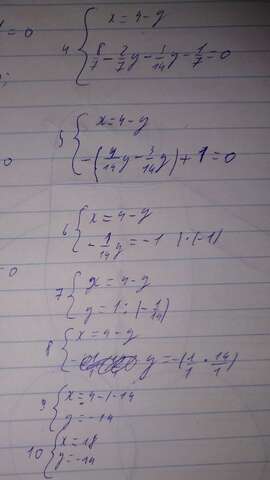 =0
4 { x=4-y
8/7-2/7y-1/14y-1/7=0
5 { x=4-y
-(4/14y-3/14y)+1=0
6 { x=4-y
-1/14y=-1 |·(-1)
7 { x=4-y
y=1:(-1/14)
8 { x=4-y
y=-(1/1·14/1)
9 { x=4-(-14
y=-14
10 { x=18
y=-14